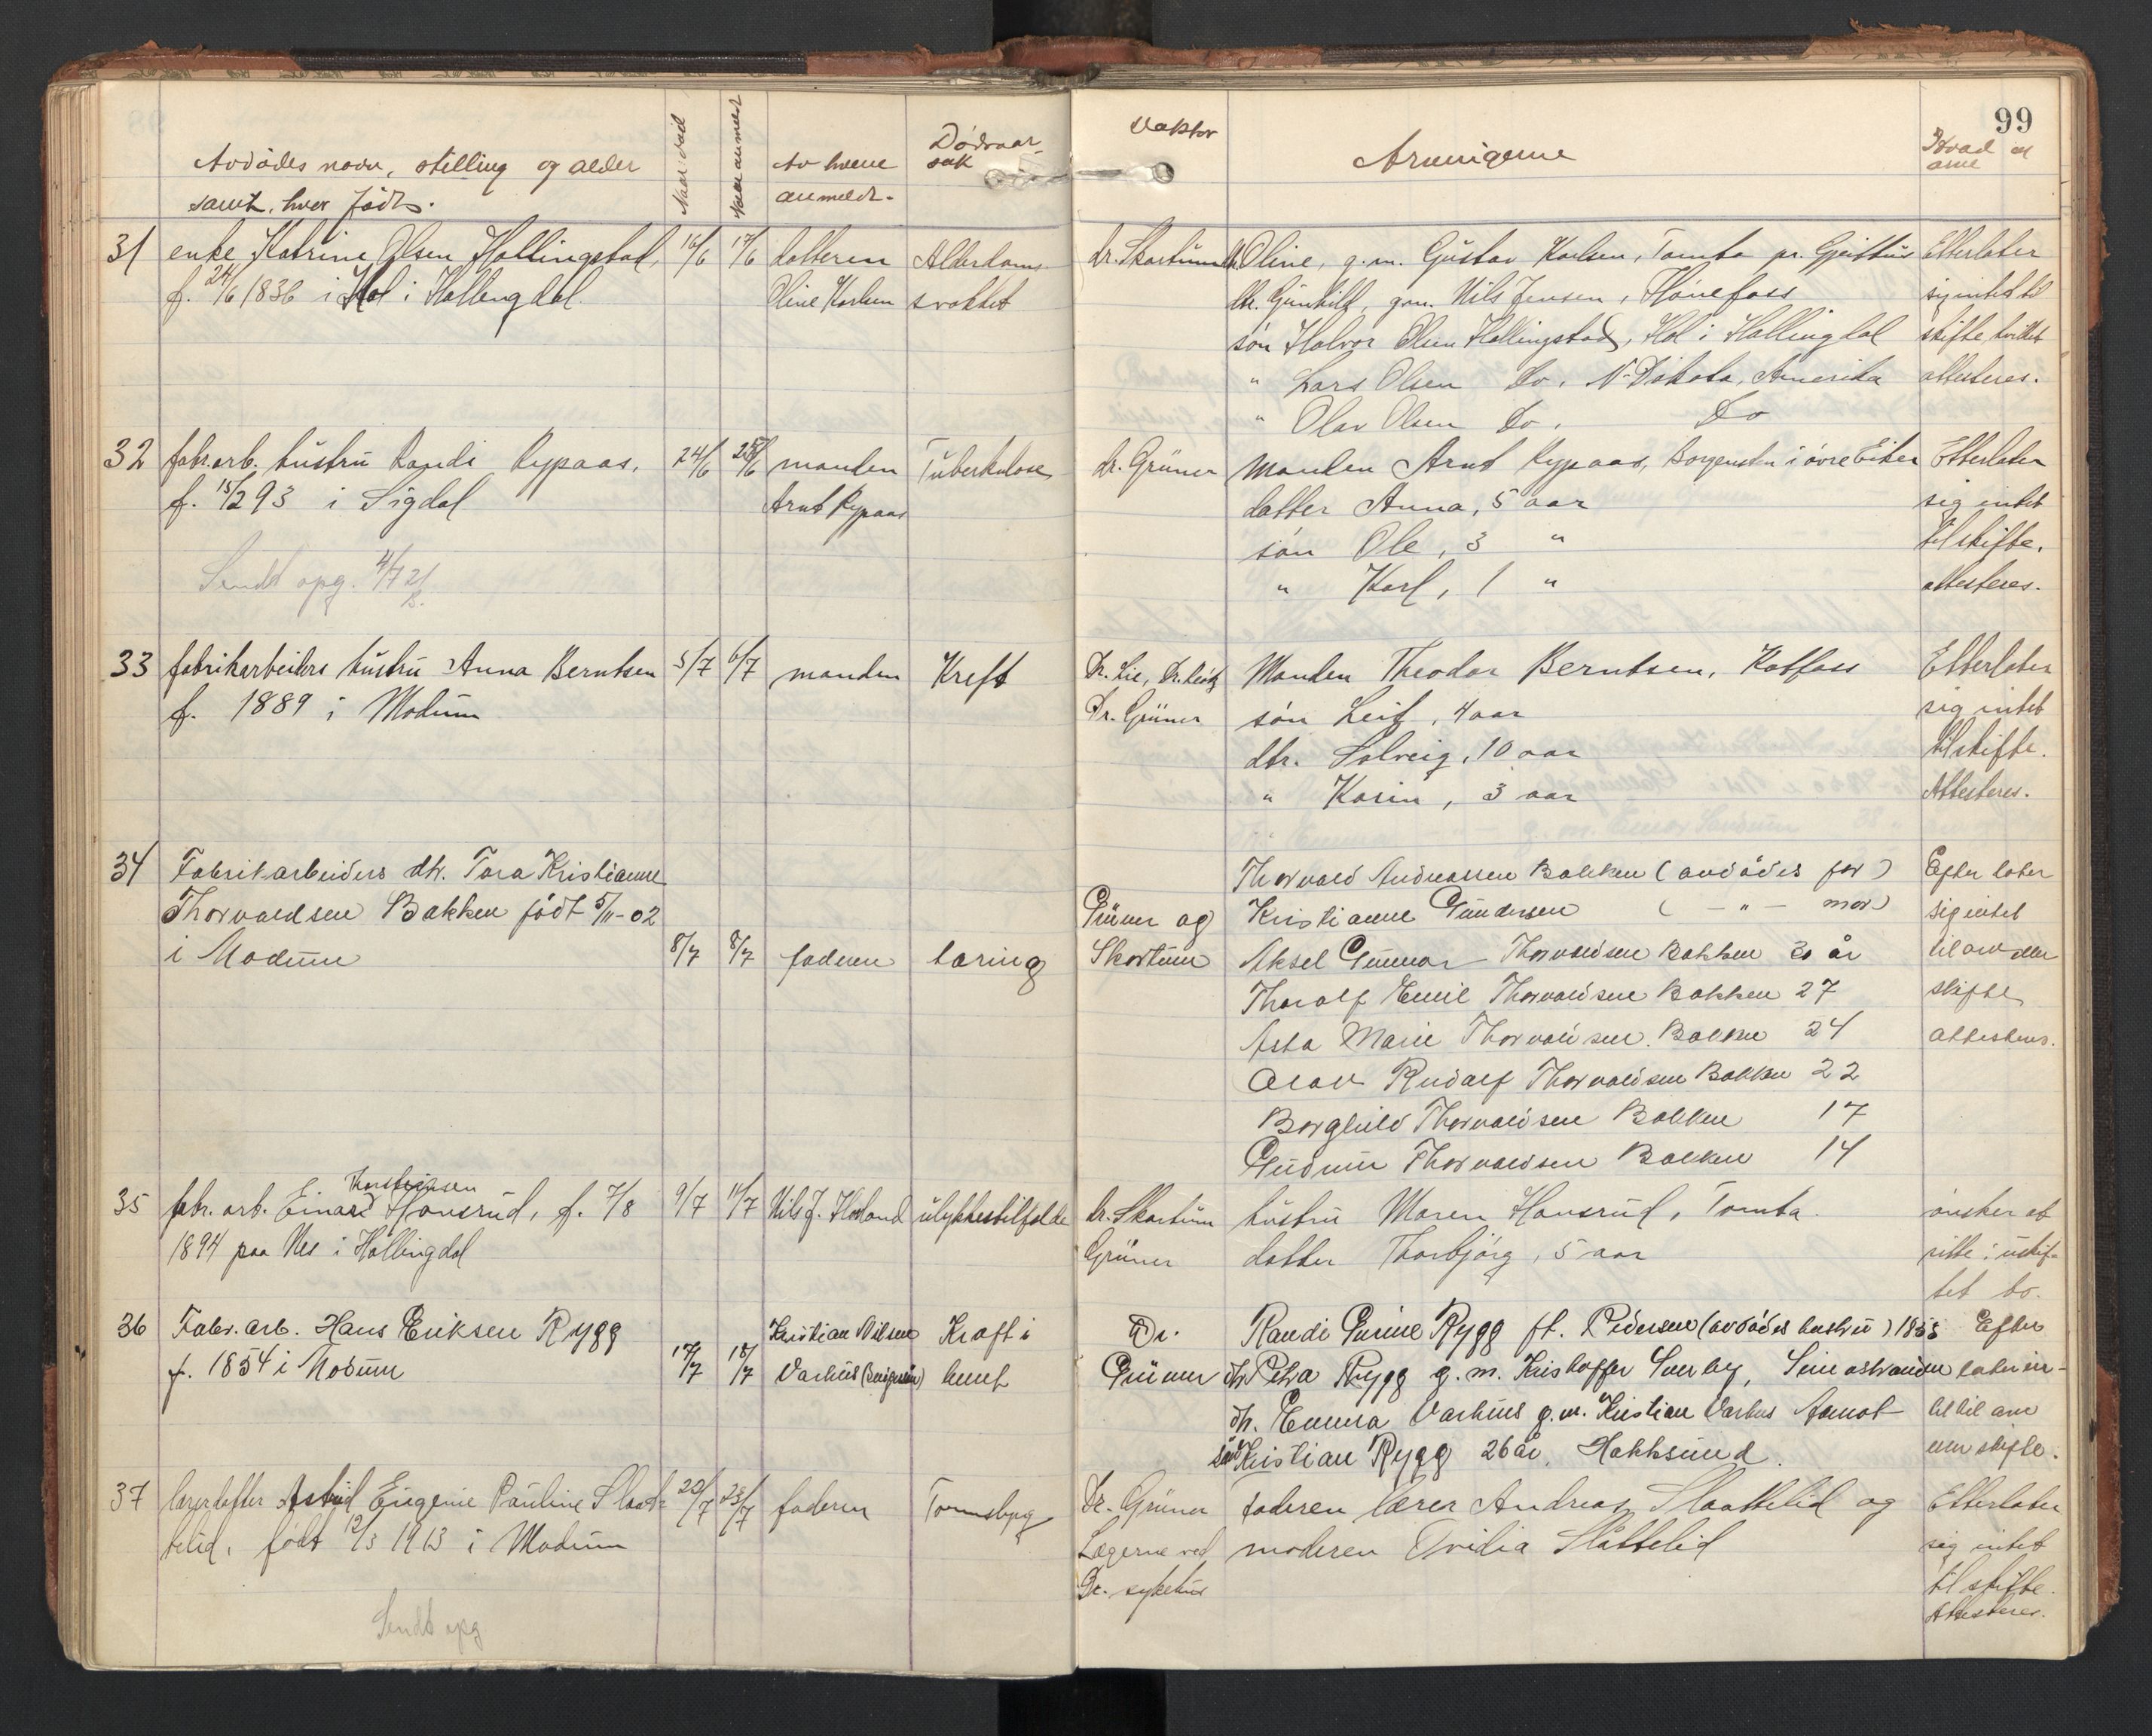 99
Avdødes navn, stilling og alder
samt, hvor født.
Naar død
Naar anmeldt
Av hvem
anmeldt.
Dødsaar-
sak
Doktor
Arvingerne
Hvad
arve
31 enke Katrine Olsen Hallingstad, 16/6 17/6 datteren Alderdoms- dr. Skartum dtr. Oline, g.m. Gustav Karlsen, Tomba pr. Efterlater
f. 24/6 1836 i Hol i Hallingdal. Oline Karlsen svakhet dtr. Gunhild, g.m. Nils Jensen, Hønefoss sig intet til
søn Halvor Olsen Hallingstad, Hol i Hallingdal skifte hvilket
" Lars Olsen Do, N-Dakota, Amerika attesteres.
" Olav Olsen Do, Do
32 fabr.arb. hustru Randi Rypaas, 24/6 25/6 manden Tuberkulose dr. Grüner Manden Arnt Rypaas, i øvre Eiker Efterlater
f. 15/2 93 i Sigdal Arnt Rypaas datter Anna, 5 aar sig intet
søn Ole, 3 " til skifte.
Sendt opg. 4/7 21 " Karl, 1 " attesteres.
33 fabrikarbeiders hustru Anna Berntsen 5/7 6/7 manden Kreft Dr. Lie, Dr. Manden Theodor Berntsen, Katfoss Efterlater
f. 1889 i Modum Dr. Grüner søn Leif, 4 aar sig intet
dtr. Solveig, 10 aar til skifte.
" Karin, 3 aar Attesteres.
34 Fabrikarbeiders dtr. Tora Kristianne Thorvald Andreassen Bakken (avdødes far) Efterlater
Thorvaldsen Bakken født 5/11-02 Grüner og Kristianne Gundersen ( - " - mor) sig intet
i Modum 8/7 8/7 faderen tæring Skartum Aksel Gunnar Thorvaldsen Bakken 30 år til arv eller
Thoralf Emil Thorvaldsen Bakken 27 skifte
Asta Marie Thorvaldsen Bakken 24 attesteres.
Olav Rudolf Thorvaldsen Bakken 22
Borghild Thorvaldsen Bakken 17
Gudrun Thorvaldsen Bakken 14
Thorsteinsen
35 fabr. arb. Einar Hansrud, f. 7/8 9/7 11/7 Nils J. ulykkestilfælde dr. Skartum hustru Maren Hansrud, Tomba. ønsker at
1894 paa Nes i Hallingdal Grüner datter Thorbjørg, 5 aar sitte i uskif-
tet bo.
36 Fabr. arb. Hans Eriksen Rygg Kristian Nilsen Kræft i Dr. Randi Gurine Rygg ft. Pedersen (avdødes hustru) 1855 Efter
f. 1854 i Modum 17/7 18/7 Varhus (svigersøn) Grüner dtr. Petra Rygg g.m. Kristoffer later in-
dtr. Emma Varhus g.m. Kristian Varhus Åmot tet til arv
søn Kristian Rygg 26 år, Hokksund. eller skifte.
37 lærerdatter Astrid Eugenie Pauline Slaat- 22/7 23/7 faderen Dr. Grüner Faderen lærer Andreas Slaattelid og Efterlater
telid, født 12/3 1913 i Modum Lægerne ved moderen Ovidia Slåttelid sig intet
Dr. sykehus til skifte.
Attesteres.
Sendt opg